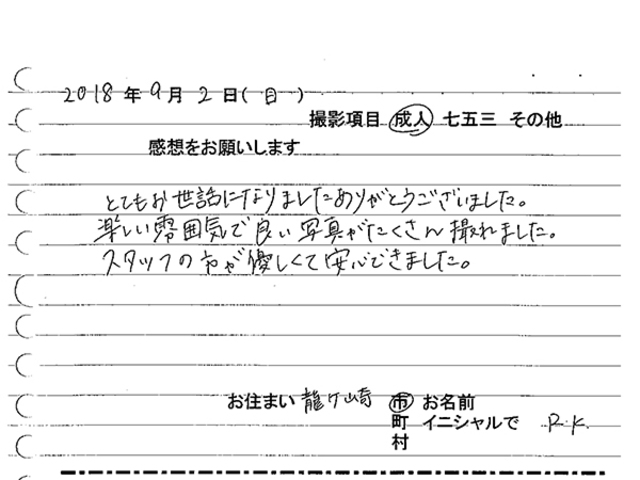 2018年9月2日(日)
撮影項目 成人 七五三 その他
感想をお願いします
とてもお世話になりましたありがとうございました。
楽しい雰囲気で良い写真がたくさん撮れました。
スタッフの方が優しくて安心できました。
お住まい 龍ケ崎 市 お名前
町 イニシャルで R.K.
村